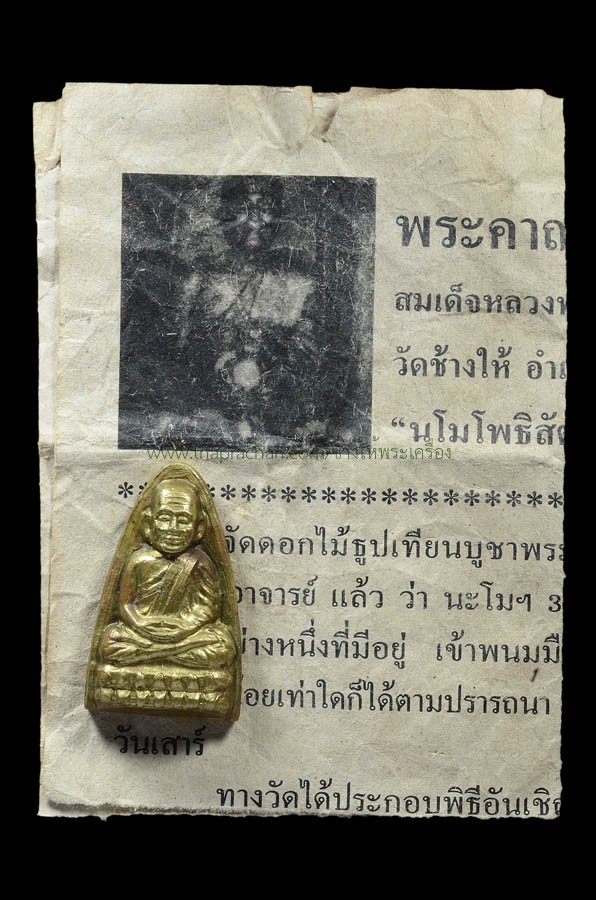 พระคาถ
สมเด็จหลวงพ
วัดช้างให้ อำเ
“นโมโพธิสัต
www.thaprachan.com/ช้างให้พระเครื่อง
************************
จัดดอกไม้ธูปเทียนบูชาพระ
อาจารย์ แล้ว ว่า นะโมฯ 3
ย่างหนึ่งที่มีอยู่ เข้าพนมมื
อยเท่าใดก็ได้ตามปรารถนา
วันเสาร์
ทางวัดได้ประกอบพิธีอันเชิญ